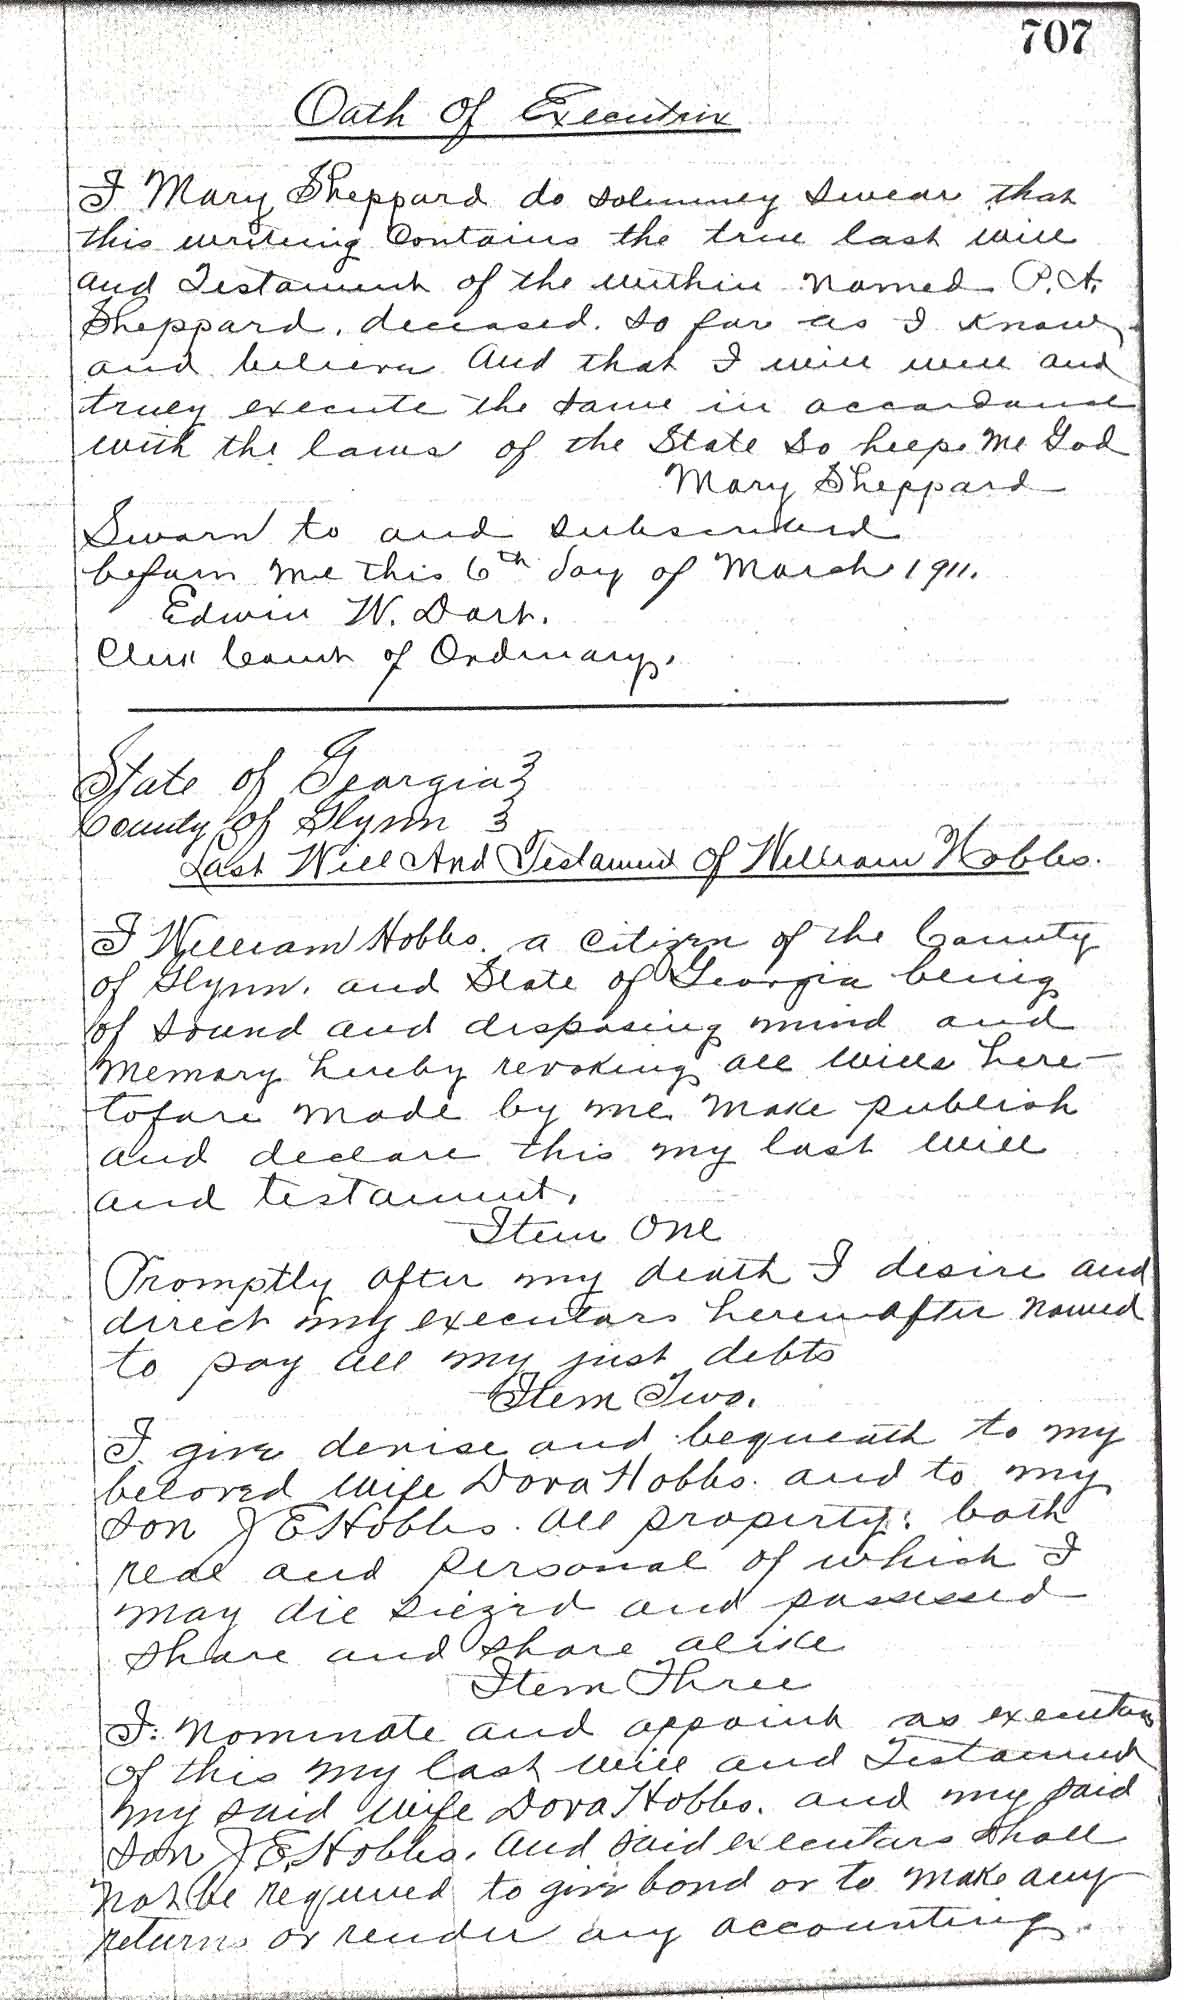 707
Oath Of Executrix
I Mary Sheppard do solemnly swear that
this writing Contains the true last will
and Testament of the within named P. A.
Sheppard, deceased. so far as I know
and believe And that I will well and
truly execute the same in accordance
with the laws of the State So help me God
Mary Sheppard
Sworn to and subscribed
before me this 6th day of March 1911.
Edwin W. Dart.
Clerk Court of Ordinary.
State of Georgia }
County of Glynn }
Last Will And Testament Of William Hobbs.
I William Hobbs. a Citizen of the County
of Glynn. and State of Georgia being
of sound and disposing mind and
memory hereby revoking all wills here-
tofore made by me make publish
and declare this my last will
and testament.
Item One
Promptly after my death I desire and
direct my executors hereinafter named
to pay all my just debts
Item Two.
I give devise and bequeath to my
beloved wife Dora Hobbs. and to my
son J E Hobbs. all property: both
real and personal of which I
may die siezed and possessed
share and share alike
Item Three
I: nominate and appoint as executors
of this my last will and Testament
my said wife Dora Hobbs. and my said
son J E. Hobbs. And said executors shall
not be required to give bond or to make any
returns or render any accounting.